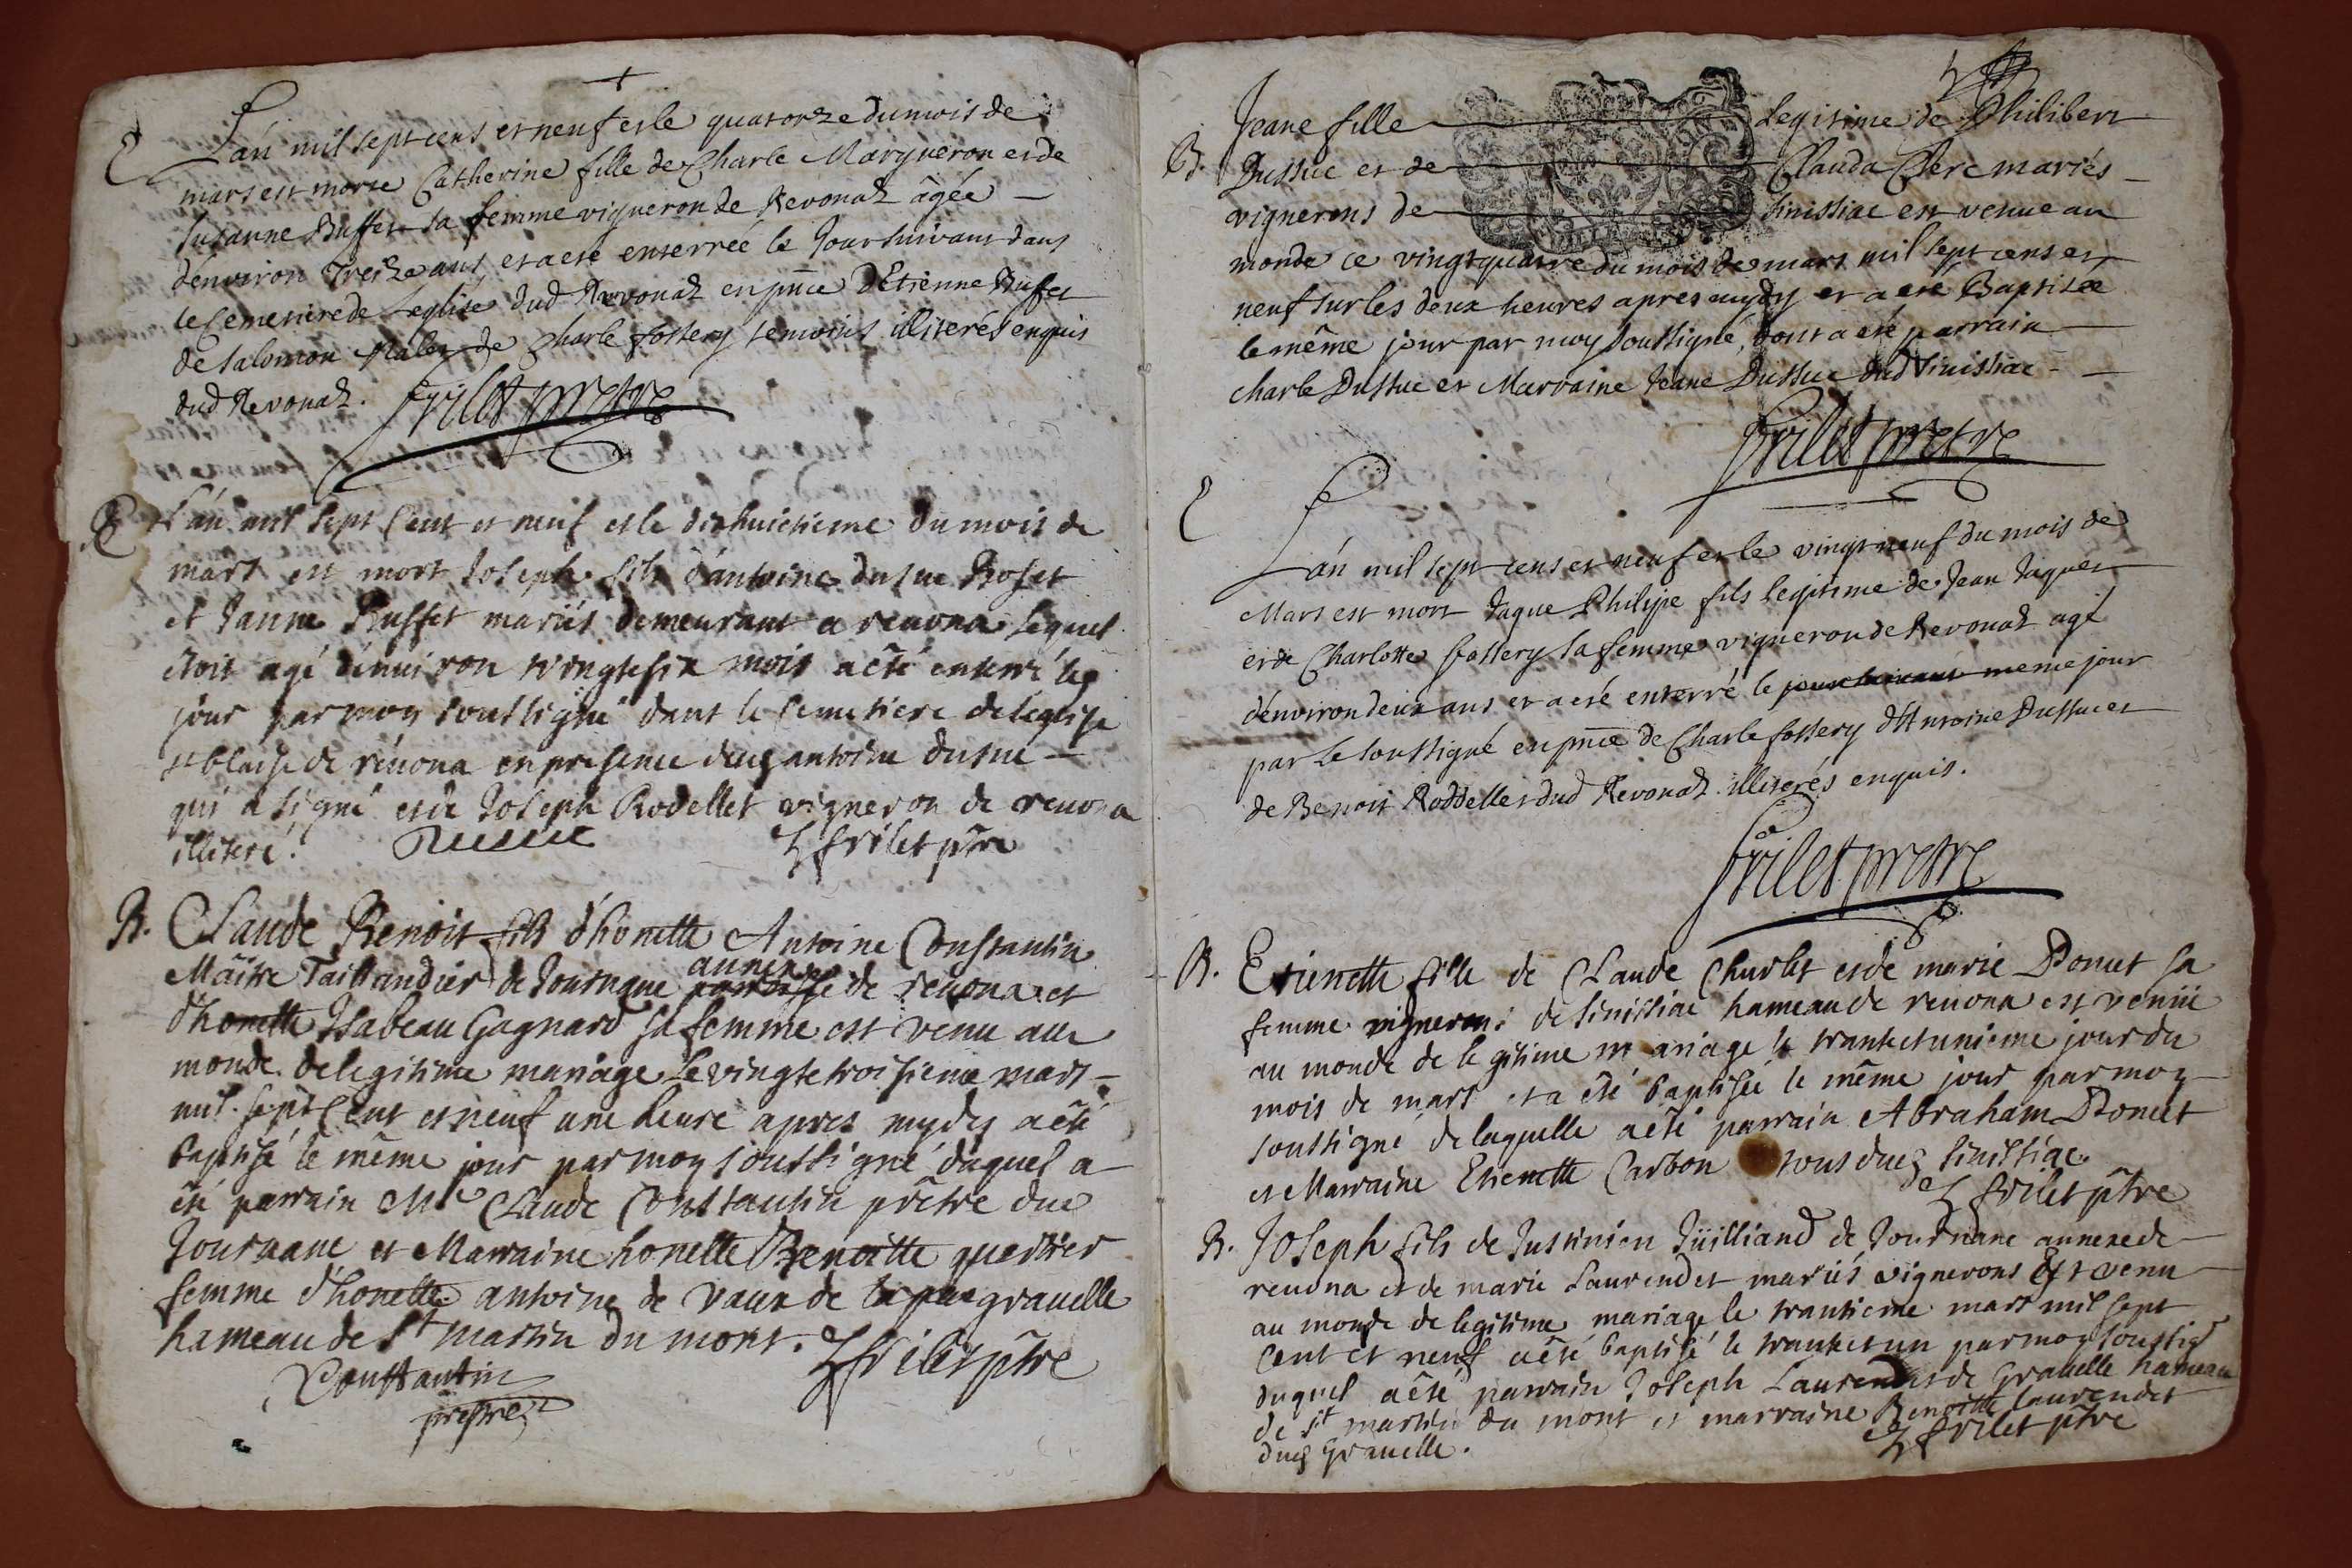 E L'an mil sept cens et neuf et le quatorze du mois de
mars est morte Catherine fille de Charle Margueron et de
Susanne Buffet sa femme vigneron de Revonaz âgée
d'environ treize ans, et a eté enterrée le jour suivant dans
le Cemetiere de Leglise dud Revonaz en pñce d'Etienne Bufet
de Salomon de Charle fossery temoins illiterés enquis
dud Revonaz. frilet pretre
E L'an mil sept Cent et neuf et le dixhuictieme du mois de
mars est mort Joseph fils d'antoine dusuc Roset
et Janne Buffet mariés demeurant a revona lequel
etoit agé d'enuiron vingtesix mois a êté enterré le
jour par moy soussigné dans le Cemetiere de leglise
st blaise de revona en presence dud antoine dusuc
qui a signé et de Joseph Rodellet vigneron de revona
illiteré. Dussuc frilet ptre
B. Claude Benoit fils d'honette Antoine Constantin
Maitre Taillandier de Journane annexe paroisse de revona et
d'honette Isabeau Gagnard sa femme est venu au
monde de legitime mariage le vingtetroisieme mars
mil sept Cent et neuf une heure apres mydy a êté
baptisé le même jour par moy soussigné duquel a
êté parrain Mre Claude Constantin prêtre dud
Journane et Marraine honette Benoitte quertier
femme d'honette antoine de vaux de gravelle
hameau de St martin du mont. frilet ptre
Constantin
prestre
Jeane fille Legitime de Philibert
B. Dussuc et de Clauda Clerc mariés
vignerons de Sinissiac est venue au
monde ce vingtquatre du mois de mars mil sept cens et
neuf sur les deux heures apres mydy et a eté Baptisée
le même jour par moy soussigné, dont a eté parrain
charle Dussuc et Marraine Jeane Dussuc dud Sinissiac
frilet pretre
E L'an mil sept cens et neuf et le vingt neuf du mois de
Mars est mort Jaque Philipe fils legitime de Jean Jaquet
et de Charlotte fossery sa femme vigneron de Revonaz agé
d'environ deux ans et a eté enterré le jour suivant meme jour
par Le soussigné en pñce de Charle fossery d'Antoine Dussuc et
de Benoit Roddellet dud Revonaz illiterés enquis.
frilet pretre
B. Etienette fille de Claude Charlet et de marie Donet sa
femme vignerons de sinissiac hameau de revona est venüe
au monde de legitime mariage le trantetunieme jour du
mois de mars et a êté baptisée le même jour par moy
soussigné de laquelle a êté parrain Abraham Donet
et Marraine Etienette Carbon tous dud sinissiac
frilet ptre
B. Joseph fils de Justinien Juilliand de Journane annexe de
revona et de marie Laurendet mariés vignerons Est venu
au monde de legitime mariage le trantieme mars mil sept
Cent et neuf a êté baptisé le trantetun par moy soussigé
duquel a êté parrain Joseph Laurendet de Gravelle hameau
de St martin du mont et marraine Benoitte laurendet
dud Gravelle. frilet ptre